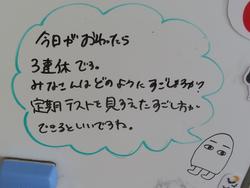 今日がおわったら
3連休です。
みなさんはどのようにすごしますか?
定期テストを見すえたすごし方が
できるといいですね。